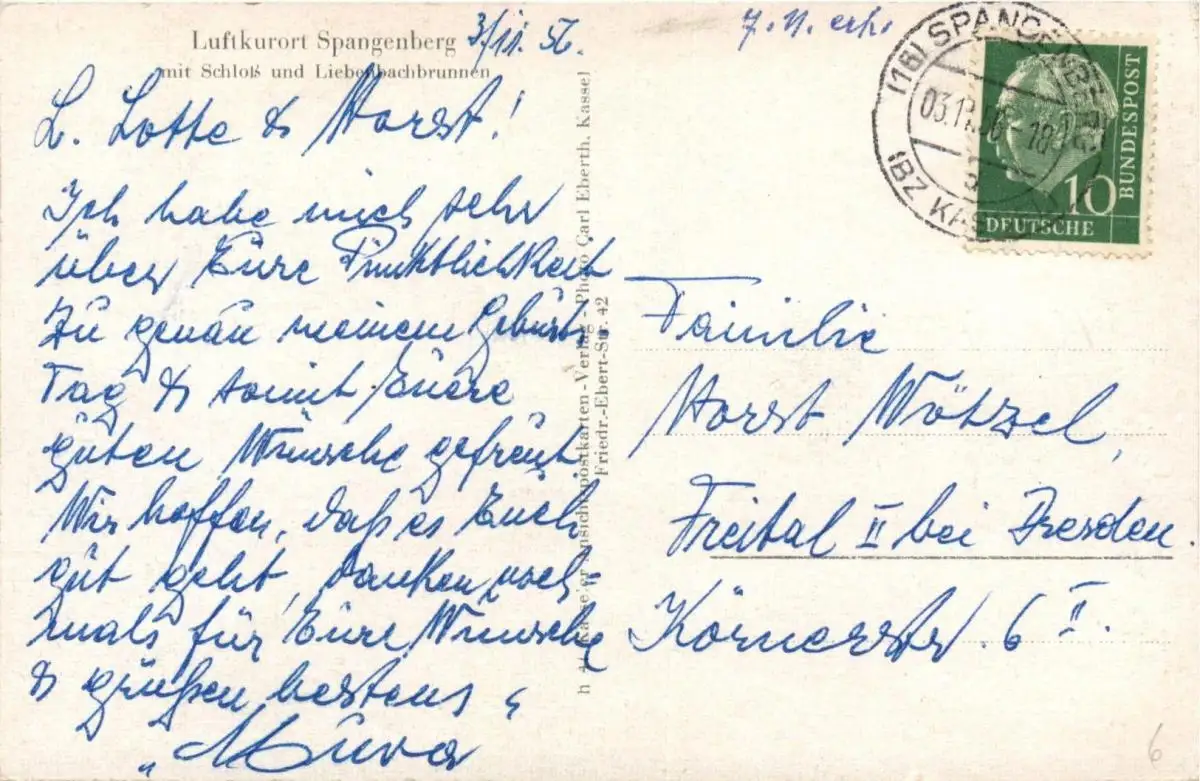 Luftkurort Spangenberg
mit Schloß und Liebenbachbrunnen
3/11. 56.
7. 11. erh.
L. Lotte & Horst!
Ich habe mich sehr
über Eure Pünktlichkeit
zu genau meinem Geburts-
Tag & somit Euere
guten Wünsche gefreut.
Wir hoffen, daß es Euch
gut geht, danken noch-
mals für Eure Wünsche
& grüßen bestens
Photo Carl Eberth, Kassel
Friedr.-Ebert-Str. 42
(16) SPANGENBERG
03.11.56
18
(BZ KASSEL)
BUNDESPOST
10
DEUTSCHE
Familie
Horst Wötzel,
Freital II bei Dresden.
Körnerstr. 6 I.
6